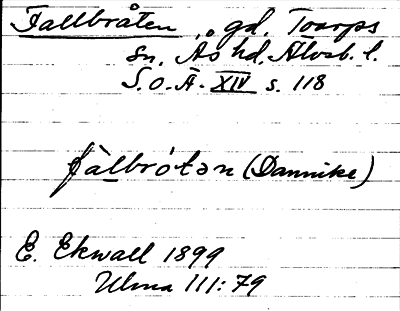 Fallbråten, gd. Toarps
sn. Ås hd. Älvsb. l.
S.O.Ä. XIV s. 118
fàlbrótən (Dannike)
E. Ekwall 1899
Ulma 111:79